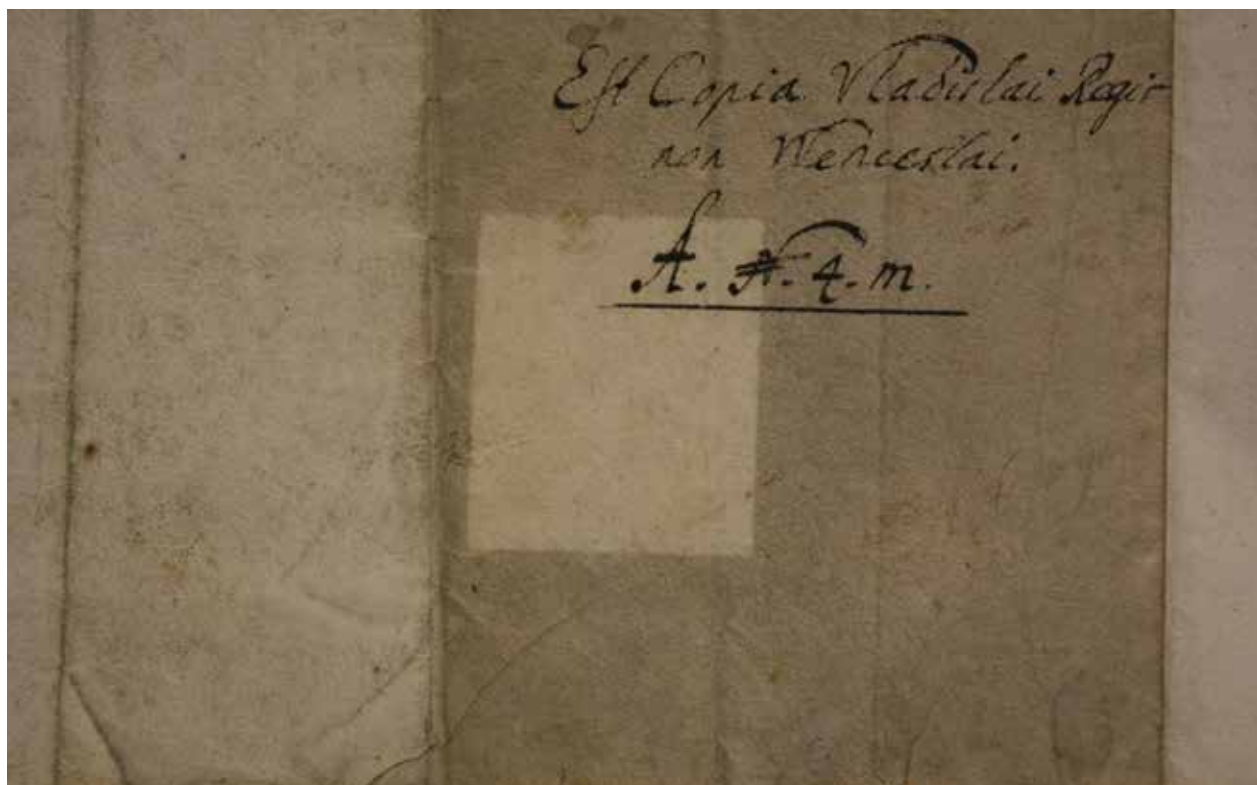 Est Copia Vladislai Regis
non Wenceslai.
A. N. 4. m.